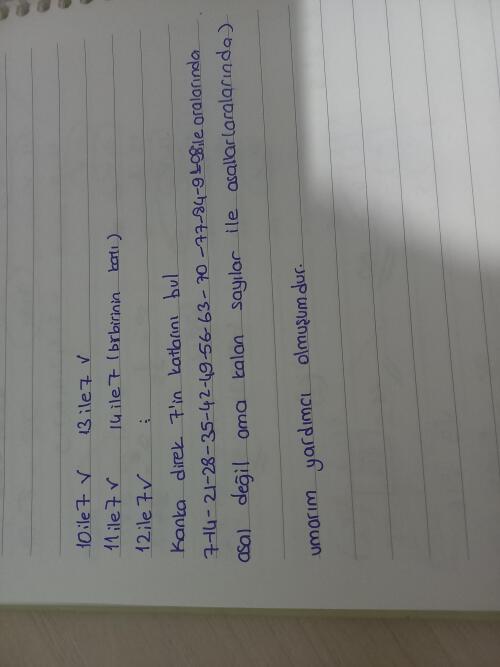 10 ile 7 √ 13 ile 7 √
11 ile 7 √ 14 ile 7 (birbirinin katı)
12 ile 7 √ :
Kanka direk 7'in katlarını bul
7-14-21-28-35-42-49-56-63-70-77-84-91-98 ile aralarında
asal değil ama kalan sayılar ile asallar (aralarında)
umarım yardımcı olmuşumdur.